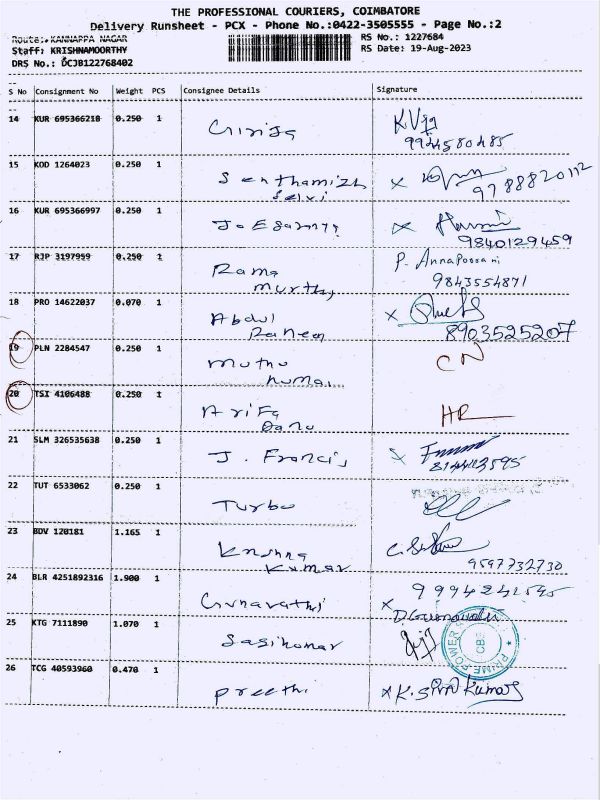 THE PROFESSIONAL COURIERS, COIMBATORE
Delivery Runsheet - PCX - Phone No.:0422-3505555 - Page No.:2
Route:. KANNAPPA NAGAR
RS No.: 1227684
Staff: KRISHNAMOORTHY
RS Date: 19-Aug-2023
DRS No.: DCJB122768402
S No Consignment No Weight PCS Consignee Details Signature
14 KUR 695366218 0.250 1 Girija K.Vija
9944580485
15 KOD 1264023 0.250 1 Senthamizh
Selvi 9788820112
16 KUR 695366997 0.250 1
9840129459
17 RJP 3197959 0.250 1 Rama P. Annapoorani
murthy 9843554871
18 PRO 14622037 0.070 1 Abdul
Raheem 8903525207
19 PLN 2284547 0.250 1 muthu CN
kumar
20 TSI 4106488 0.250 1 Arifa HR
Banu
21 SLM 326535638 0.250 1 J. Francis
22 TUT 6533062 0.250 1 Turbo
23 BDV 120181 1.165 1 Krishna
kumar 9597732730
24 BLR 4251892316 1.900 1 Gunavathi
D Gunavathi
25 KTG 7111890 1.070 1 Sasikumar
PRIME POWER
CBE
26 TCG 40593960 0.470 1 Preethi K.S
Kumar